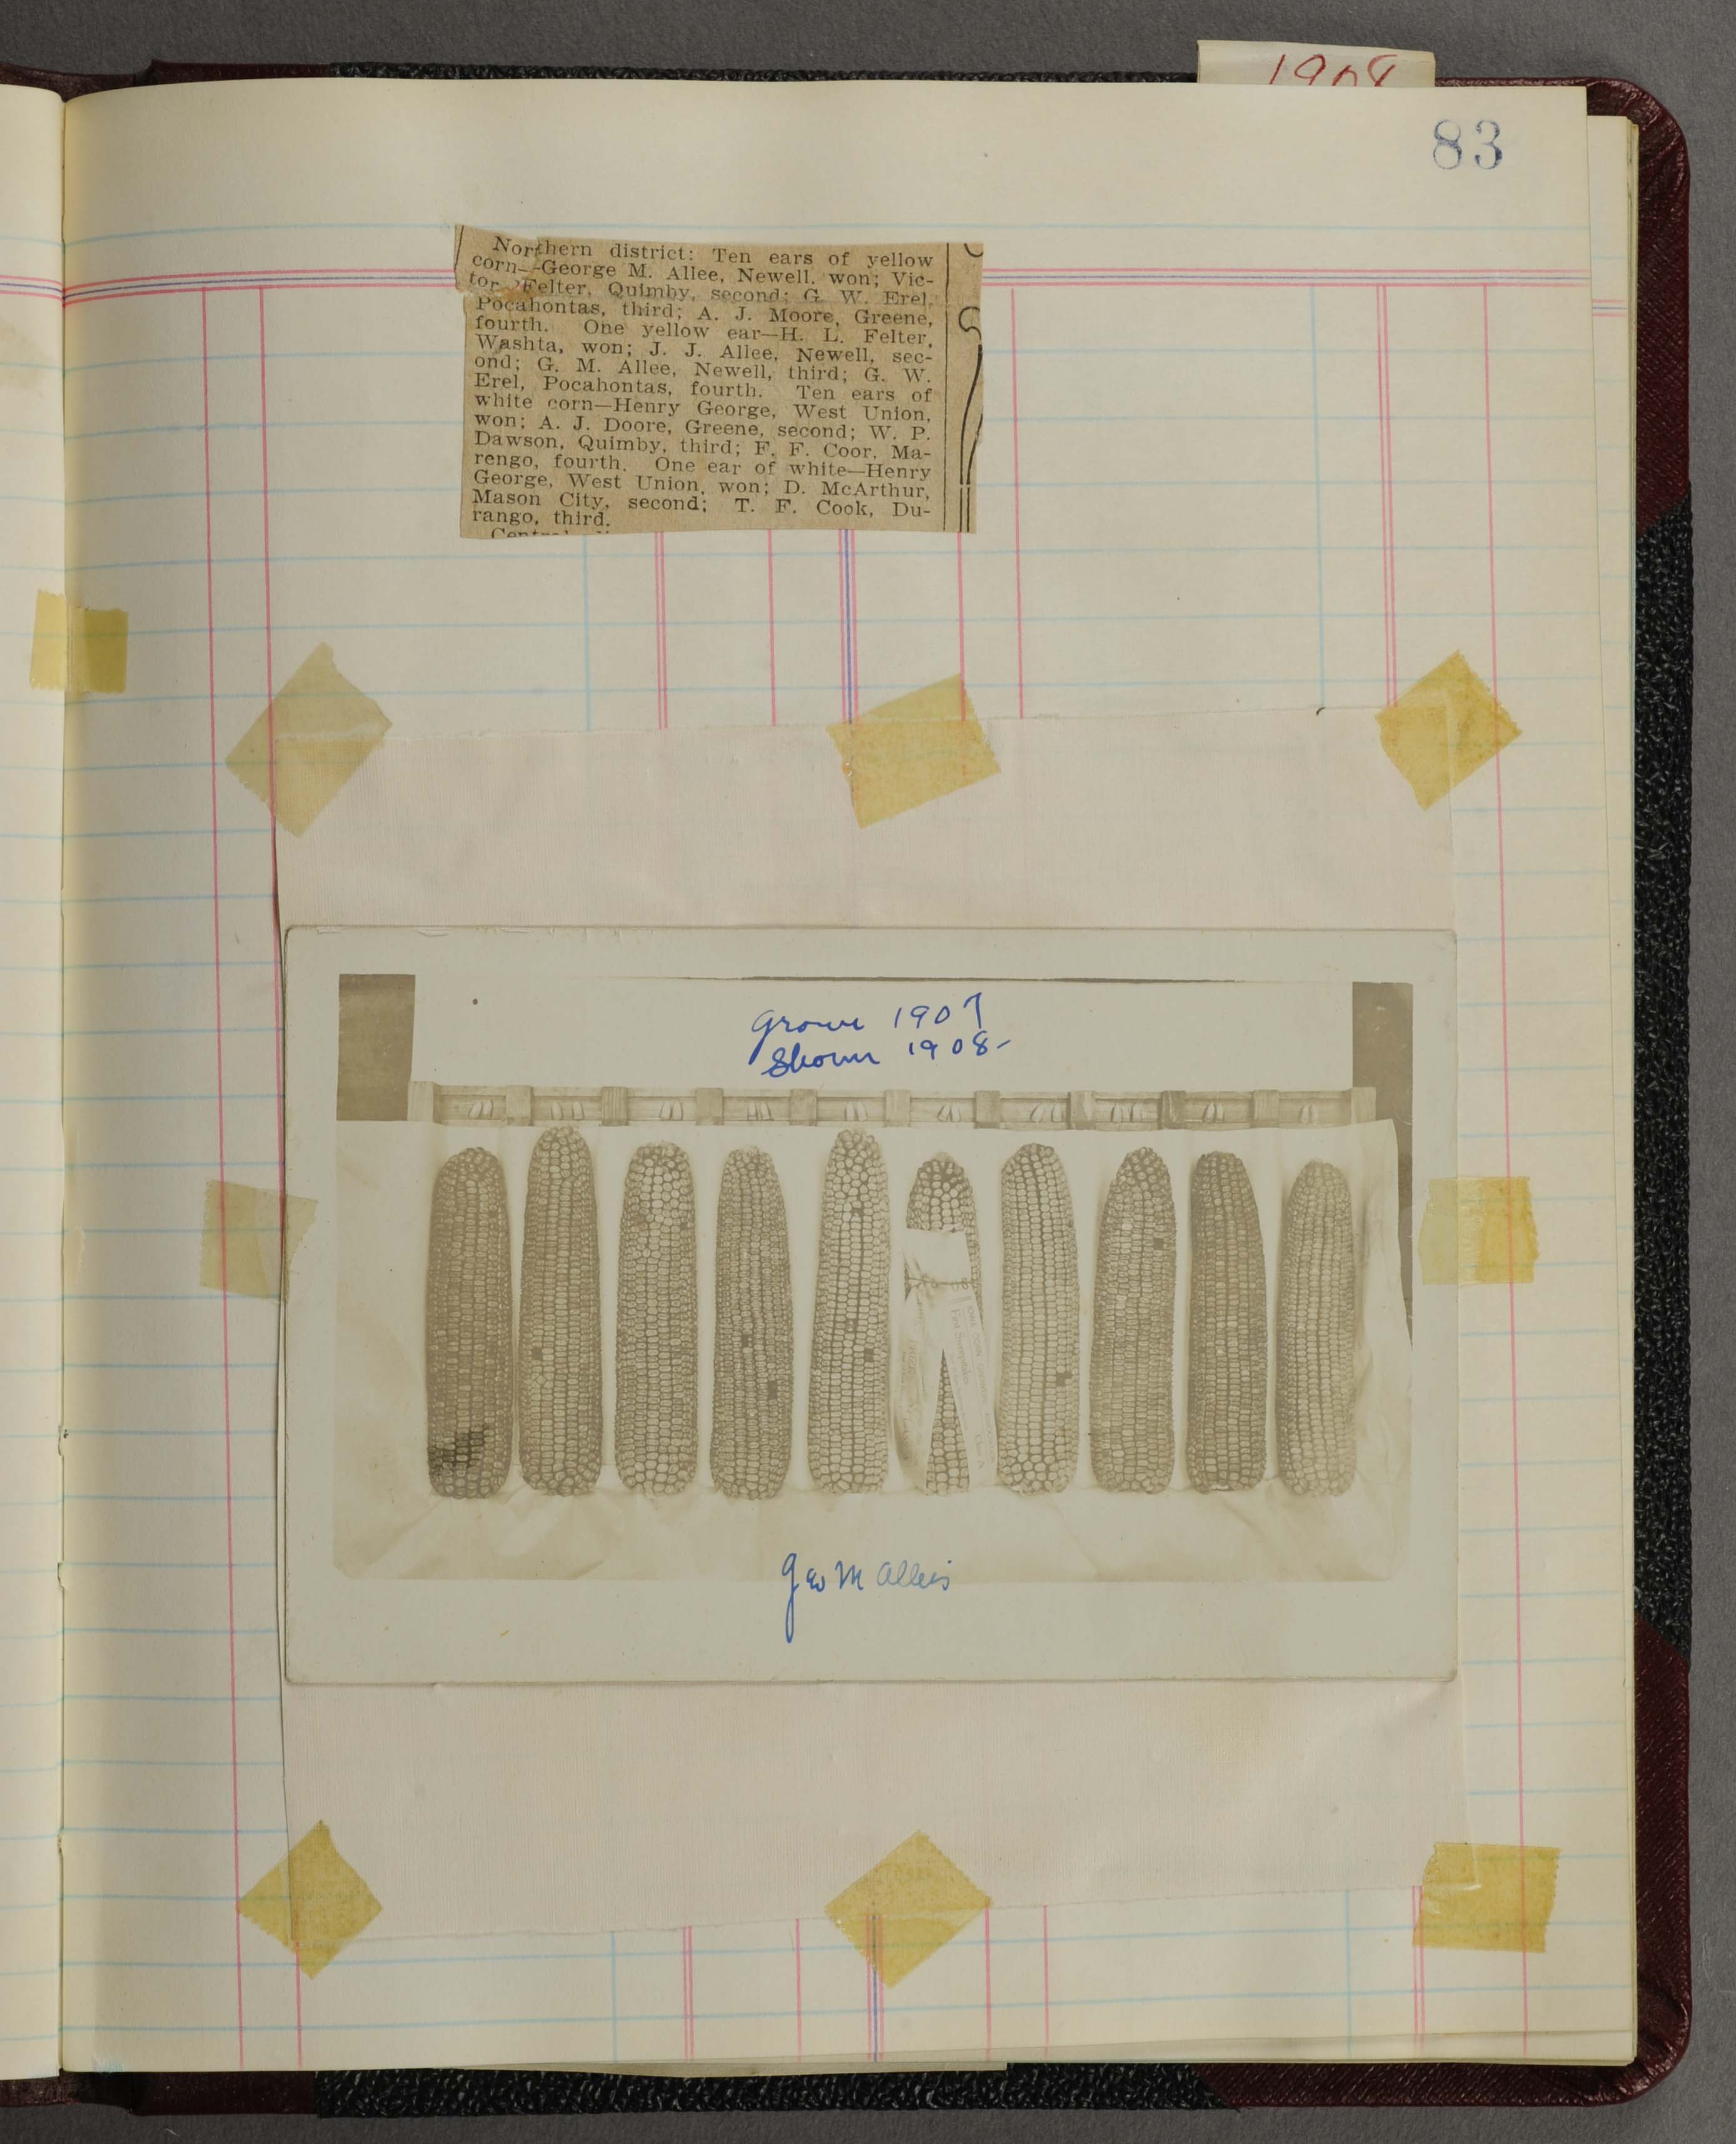 1908
83
Northern district: Ten ears of yellow
corn—George M. Allee, Newell, won; Vic-
tor Felter, Quimby, second; G. W. Erel,
Pocahontas, third; A. J. Moore, Greene,
fourth. One yellow ear—H. L. Felter,
Washta, won; J. J. Allee, Newell, sec-
ond; G. M. Allee, Newell, third; G. W.
Erel, Pocahontas, fourth. Ten ears of
white corn—Henry George, West Union,
won; A. J. Doore, Greene, second; W. P.
Dawson, Quimby, third; F. F. Coor, Ma-
rengo, fourth. One ear of white—Henry
George, West Union, won; D. McArthur,
Mason City, second; T. F. Cook, Du-
rango, third.
Grown 1907
Shown 1908-
IOWA CORN
First Sweepstake
Class A
Geo M Allee's